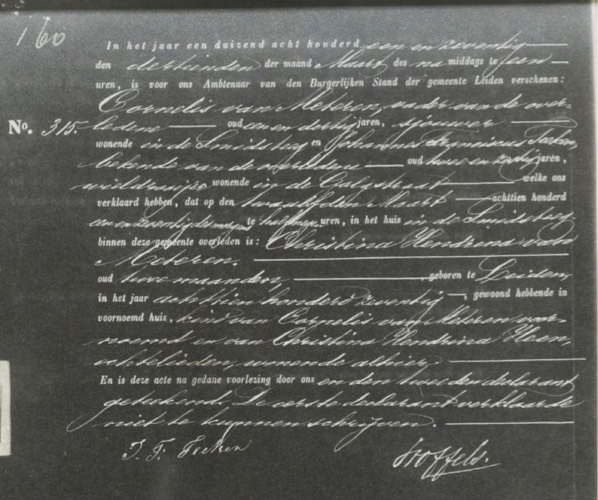 160
In het jaar een duizend acht honderd een en zeventig
den dertienden der maand Maart des na middags te een
uren, is voor ons Ambtenaar van den Burgerlijken Stand der gemeente Leiden verschenen:
Cornelis van Meteren, vader van de over-
No. 315. ledene oud een en dertig jaren, sjouwer
wonende in de Smidsteeg en Johannes Franciscus
bekende van de overledene oud twee en jaren,
wonende in de welke ons
verklaard hebben, dat op den twaalfden Maart achttien honderd
een en zeventig des te uren, in het huis in de Smidsteeg
binnen deze gemeente overleden is: Christina Hendrina van
Meteren.
oud twee maanden, geboren te Leiden,
in het jaar achttien honderd zeventig, gewoond hebbende in
voornoemd huis, kind van Cornelis van Meteren voor-
noemd en van Christina Hendrina
echtelieden, wonende alhier.
En is deze acte na gedane voorlezing door ons en den tweeden declarant
geteekend. De eerste declarant verklaarde
niet te kunnen schrijven.
J. F.